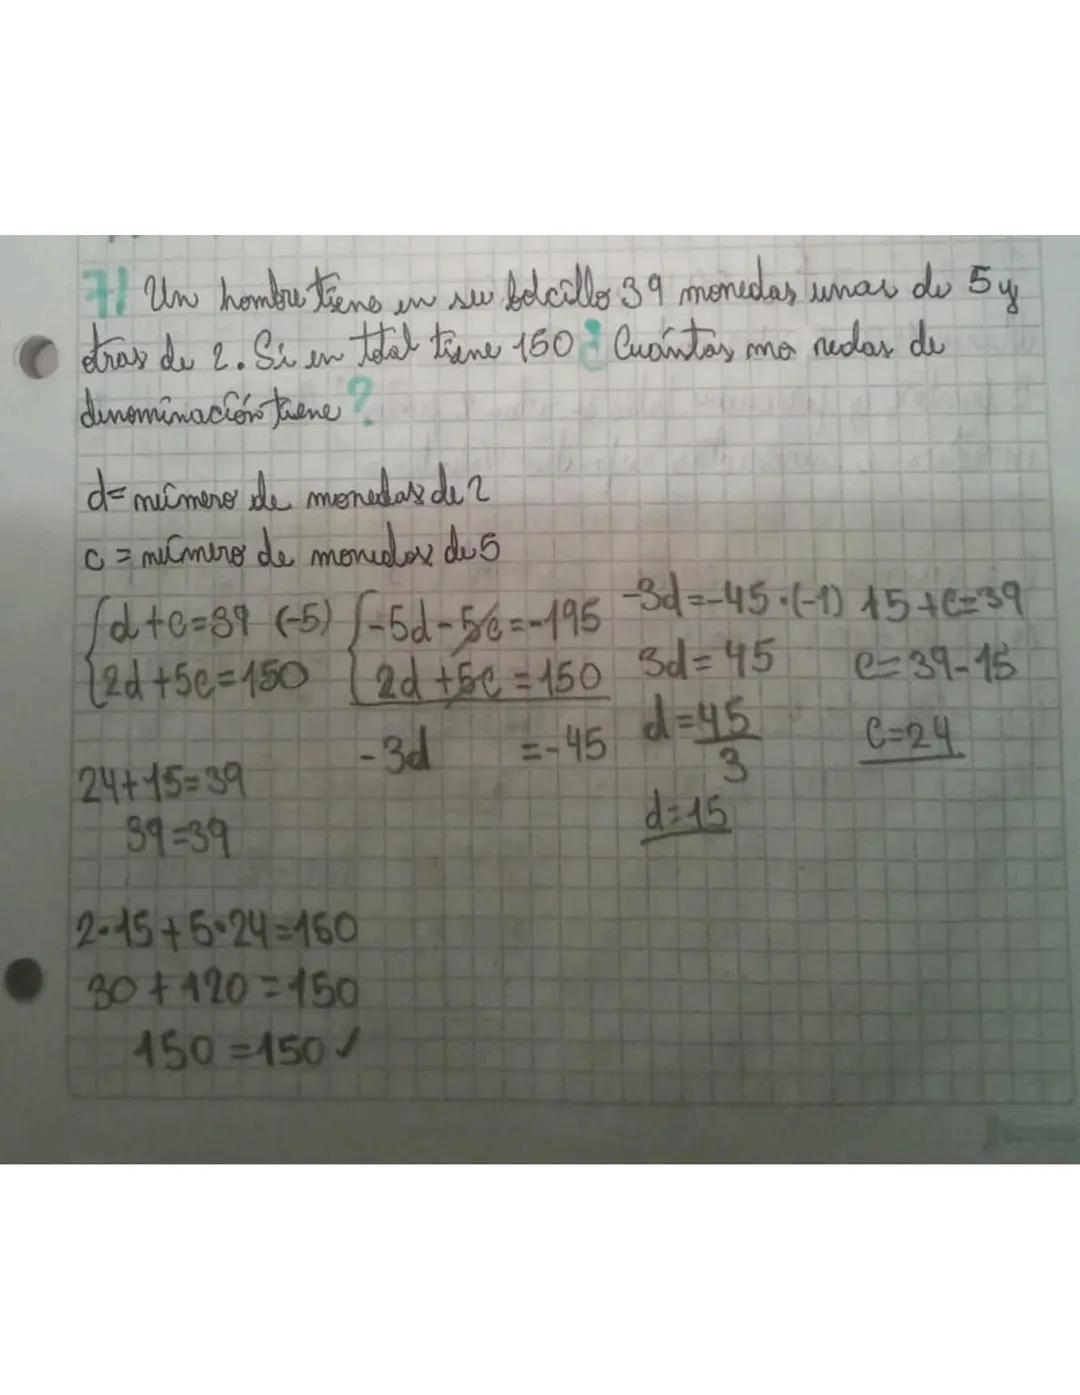 7) Un hombre tiene en su bolcillo 39 monedas unas de 5 y
otras de 2. Si en total tiene 150 ¿Cuántas monedas de
denominación tiene?
d= número de monedas de 2
c = número de monedas de 5
{d+c=39 (-5) {-5d-5c=-195 -3d=-45·(-1) 15+c=39
{2d+5c=150 {2d+5c=150 3d=45 c=39-15
-3d =-45 d=45/3 c=24
24+15=39
39=39 d=15
2·15+5·24=150
30+120=150
150=150✓